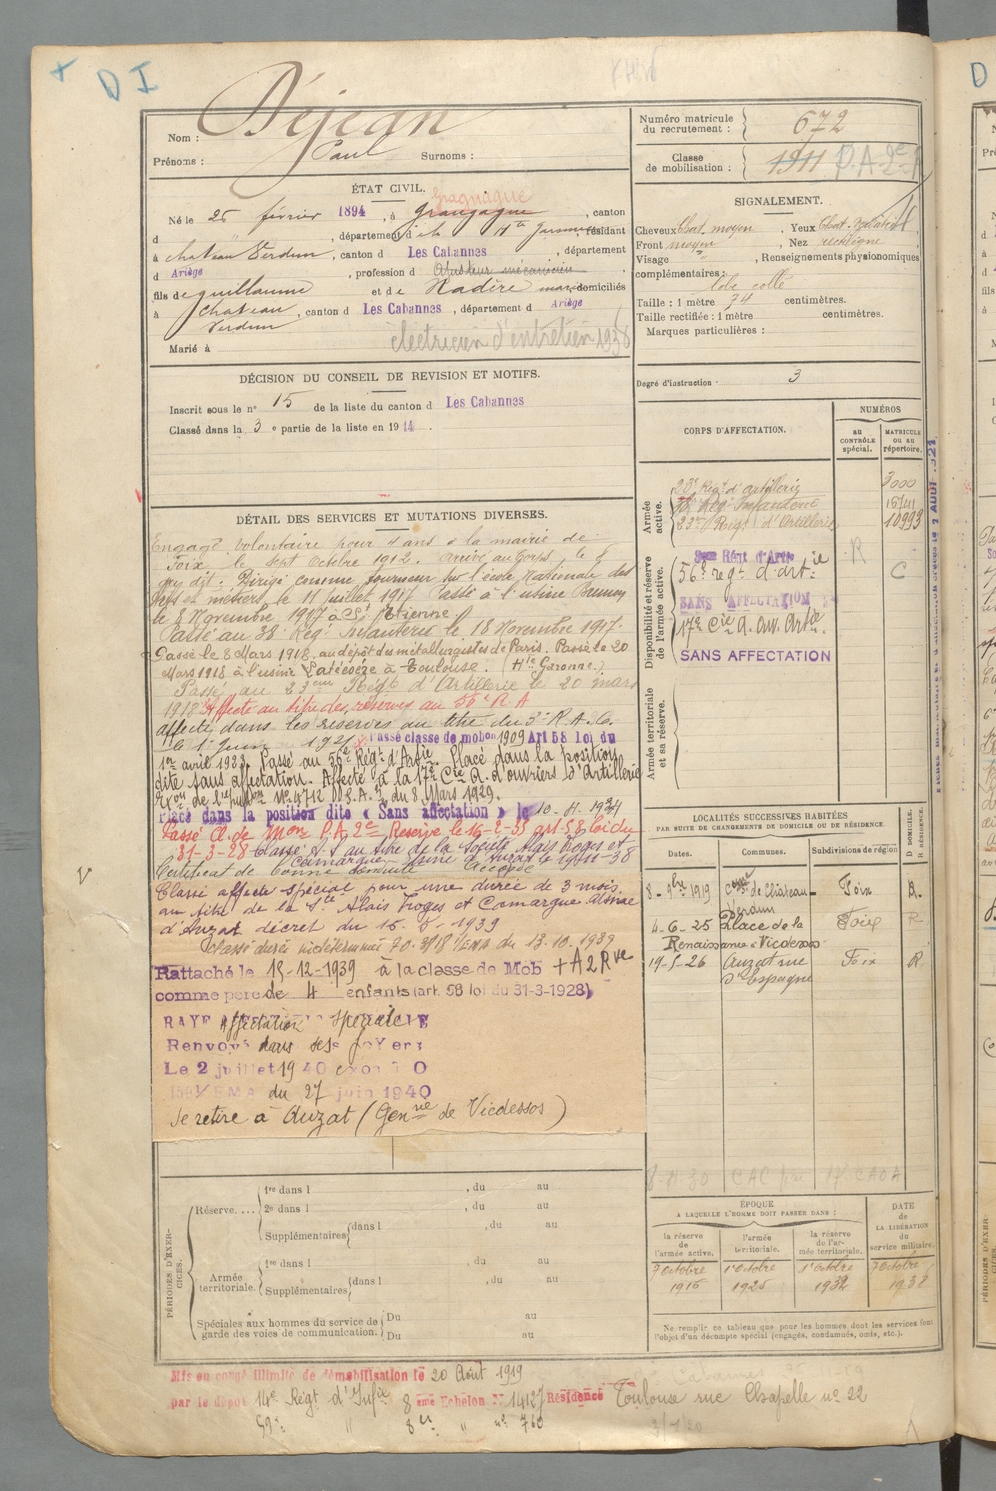 D I
Nom : Déjean
Prénoms : Paul Surnoms :
Numéro matricule du recrutement : 672
Classe de mobilisation : 1911 P.A. 2e
ÉTAT CIVIL.
Gragnague
Né le 25 février 1894, à Grangague, canton
d , département d la Hte Garonne résidant
à chateau Verdun, canton d Les Cabannes, département
d Ariège, profession d Ajusteur mécanicien
fils de guillaume et de Nadère domiciliés
à Chateau Verdun, canton d Les Cabannes, département d Ariège
Marié à
électricien d'entretien 1938
SIGNALEMENT.
Cheveux Chat. moyen, Yeux Chat.
Front moyen, Nez rectiligne
Visage , Renseignements physionomiques
complémentaires :
lobe collé
Taille : 1 mètre 74 centimètres.
Taille rectifiée : 1 mètre centimètres.
Marques particulières :
Degré d'instruction : 3
DÉCISION DU CONSEIL DE REVISION ET MOTIFS.
Inscrit sous le n° 15 de la liste du canton d Les Cabannes
Classé dans la 3e partie de la liste en 1914.
CORPS D'AFFECTATION.
NUMÉROS
AU CONTRÔLE spécial.
MATRICULE OU AU répertoire.
Armée active.
23e Régt d'artillerie 3000
38e Rég. Infanterie
23e Régt d'Artillerie 10993
Disponibilité et réserve de l'armée active.
56e regt d'artie
SANS AFFECTATION
17e Cie d. ouv. Artie
SANS AFFECTATION
R
C
Armée territoriale et sa réserve.
DÉTAIL DES SERVICES ET MUTATIONS DIVERSES.
Engagé volontaire pour 4 ans à la mairie de
Foix, le sept Octobre 1912. Arrivé au Corps, le 8
dit. Dirigé comme tourneur sur l'école Nationale des
Arts et métiers, le 11 juillet 1917 Passé à l'usine
le 8 Novembre 1917 à St Etienne.
Passé au 38e Régt Infanterie le 18 Novembre 1917.
Passé le 8 Mars 1918, au dépôt des métallurgistes de Paris. Passé le 20
Mars 1918 à l'usine Latécoère à Toulouse. (Hte Garonne.)
Passé au 23ème Régt d'Artillerie le 20 mars
1918 Affecté au titre des réserves au 56e R.A
affecté dans les réserves au titre du 3e R.A.C.
le 1er Juin 192 Passé classe de mobon 1909 Art 58 loi du
1er avril 1923. Passé au 56e Régt d'Artie. Placé dans la position
dite sans affectation. Affecté à la 17e Cie d'ouvriers d'artillerie
de N° 4712 du 8 Mars 1929.
Placé dans la position dite « Sans affectation » le 10.11.1934
Passé Cl. de Mon P.A. 2e Reserve le 16-2-35 art. 58 loi du
31-3-28 Classé A S au titre de la Société Alais Froges et
Camargue. Usine de Auzat le 19-11-38
Certificat de bonne conduite accordé
Classé affecté spécial pour une durée de 3 mois
au titre de la Sté Alais Froges et Camargue Usine
d'Auzat décret du 16.8.1939
Classé durée indéterminée 70.318 /EMA du 13.10.1939
Rattaché le 15-12-1939 à la classe de Mob + A 2 Rve
comme père de 4 enfants (art. 58 loi du 31-3-1928)
RAYE Affectation spéciale
Renvoyé dans ses foyers
Le 2 juillet 1940
EMA du 27 juin 1940
Se retire à Auzat (Genrie de Vicdessos)
LOCALITÉS SUCCESSIVES HABITÉES
PAR SUITE DE CHANGEMENTS DE DOMICILE OU DE RÉSIDENCE.
Dates. Communes. Subdivisions de région D. DOMICILE. R. RÉSIDENCE.
8-9bre 1919 Cne de Château-Verdun Foix R.
4-6-25 Place de la Renaissance Vicdessos Foix R
19-5-26 Auzat rue d'Espagne Foix R
ÉPOQUE
A LAQUELLE L'HOMME DOIT PASSER DANS :
la réserve de l'armée active. l'armée territoriale. la réserve de l'armée territoriale.
DATE de LA LIBÉRATION du service militaire.
7 Octobre 1916 1er Octobre 1925 1er Octobre 1932 7 Octobre 1938
Ne remplir ce tableau que pour les hommes dont les services font
l'objet d'un décompte spécial (engagés, condamnés, omis, etc.).
PÉRIODES D'EXERCICES.
Réserve.... 1re dans l , du au
2e dans l , du au
Supplémentaires dans l , du au
Armée territoriale. 1re dans l , du au
Supplémentaires dans l , du au
Spéciales aux hommes du service de garde des voies de communication. Du au
Du au
Mis en congé illimité de démobilisation le 20 Août 1919
par le dépôt 14e Régt d'Infie 8 ème Echelon N° 14127 Résidence Toulouse rue Chapelle n° 22
59e " 8e " n° 760